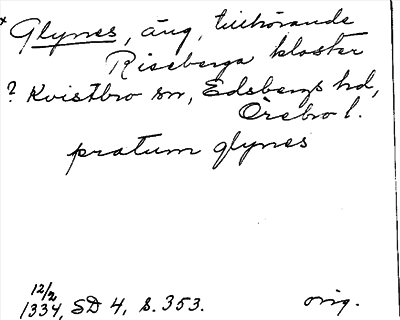 * Glynes, äng, tillhörande
Riseberga kloster
? Kvistbro sn, Edsbergs hd,
Örebro l.
pratum glynes
12/2
1334, SD 4, s. 353. orig.